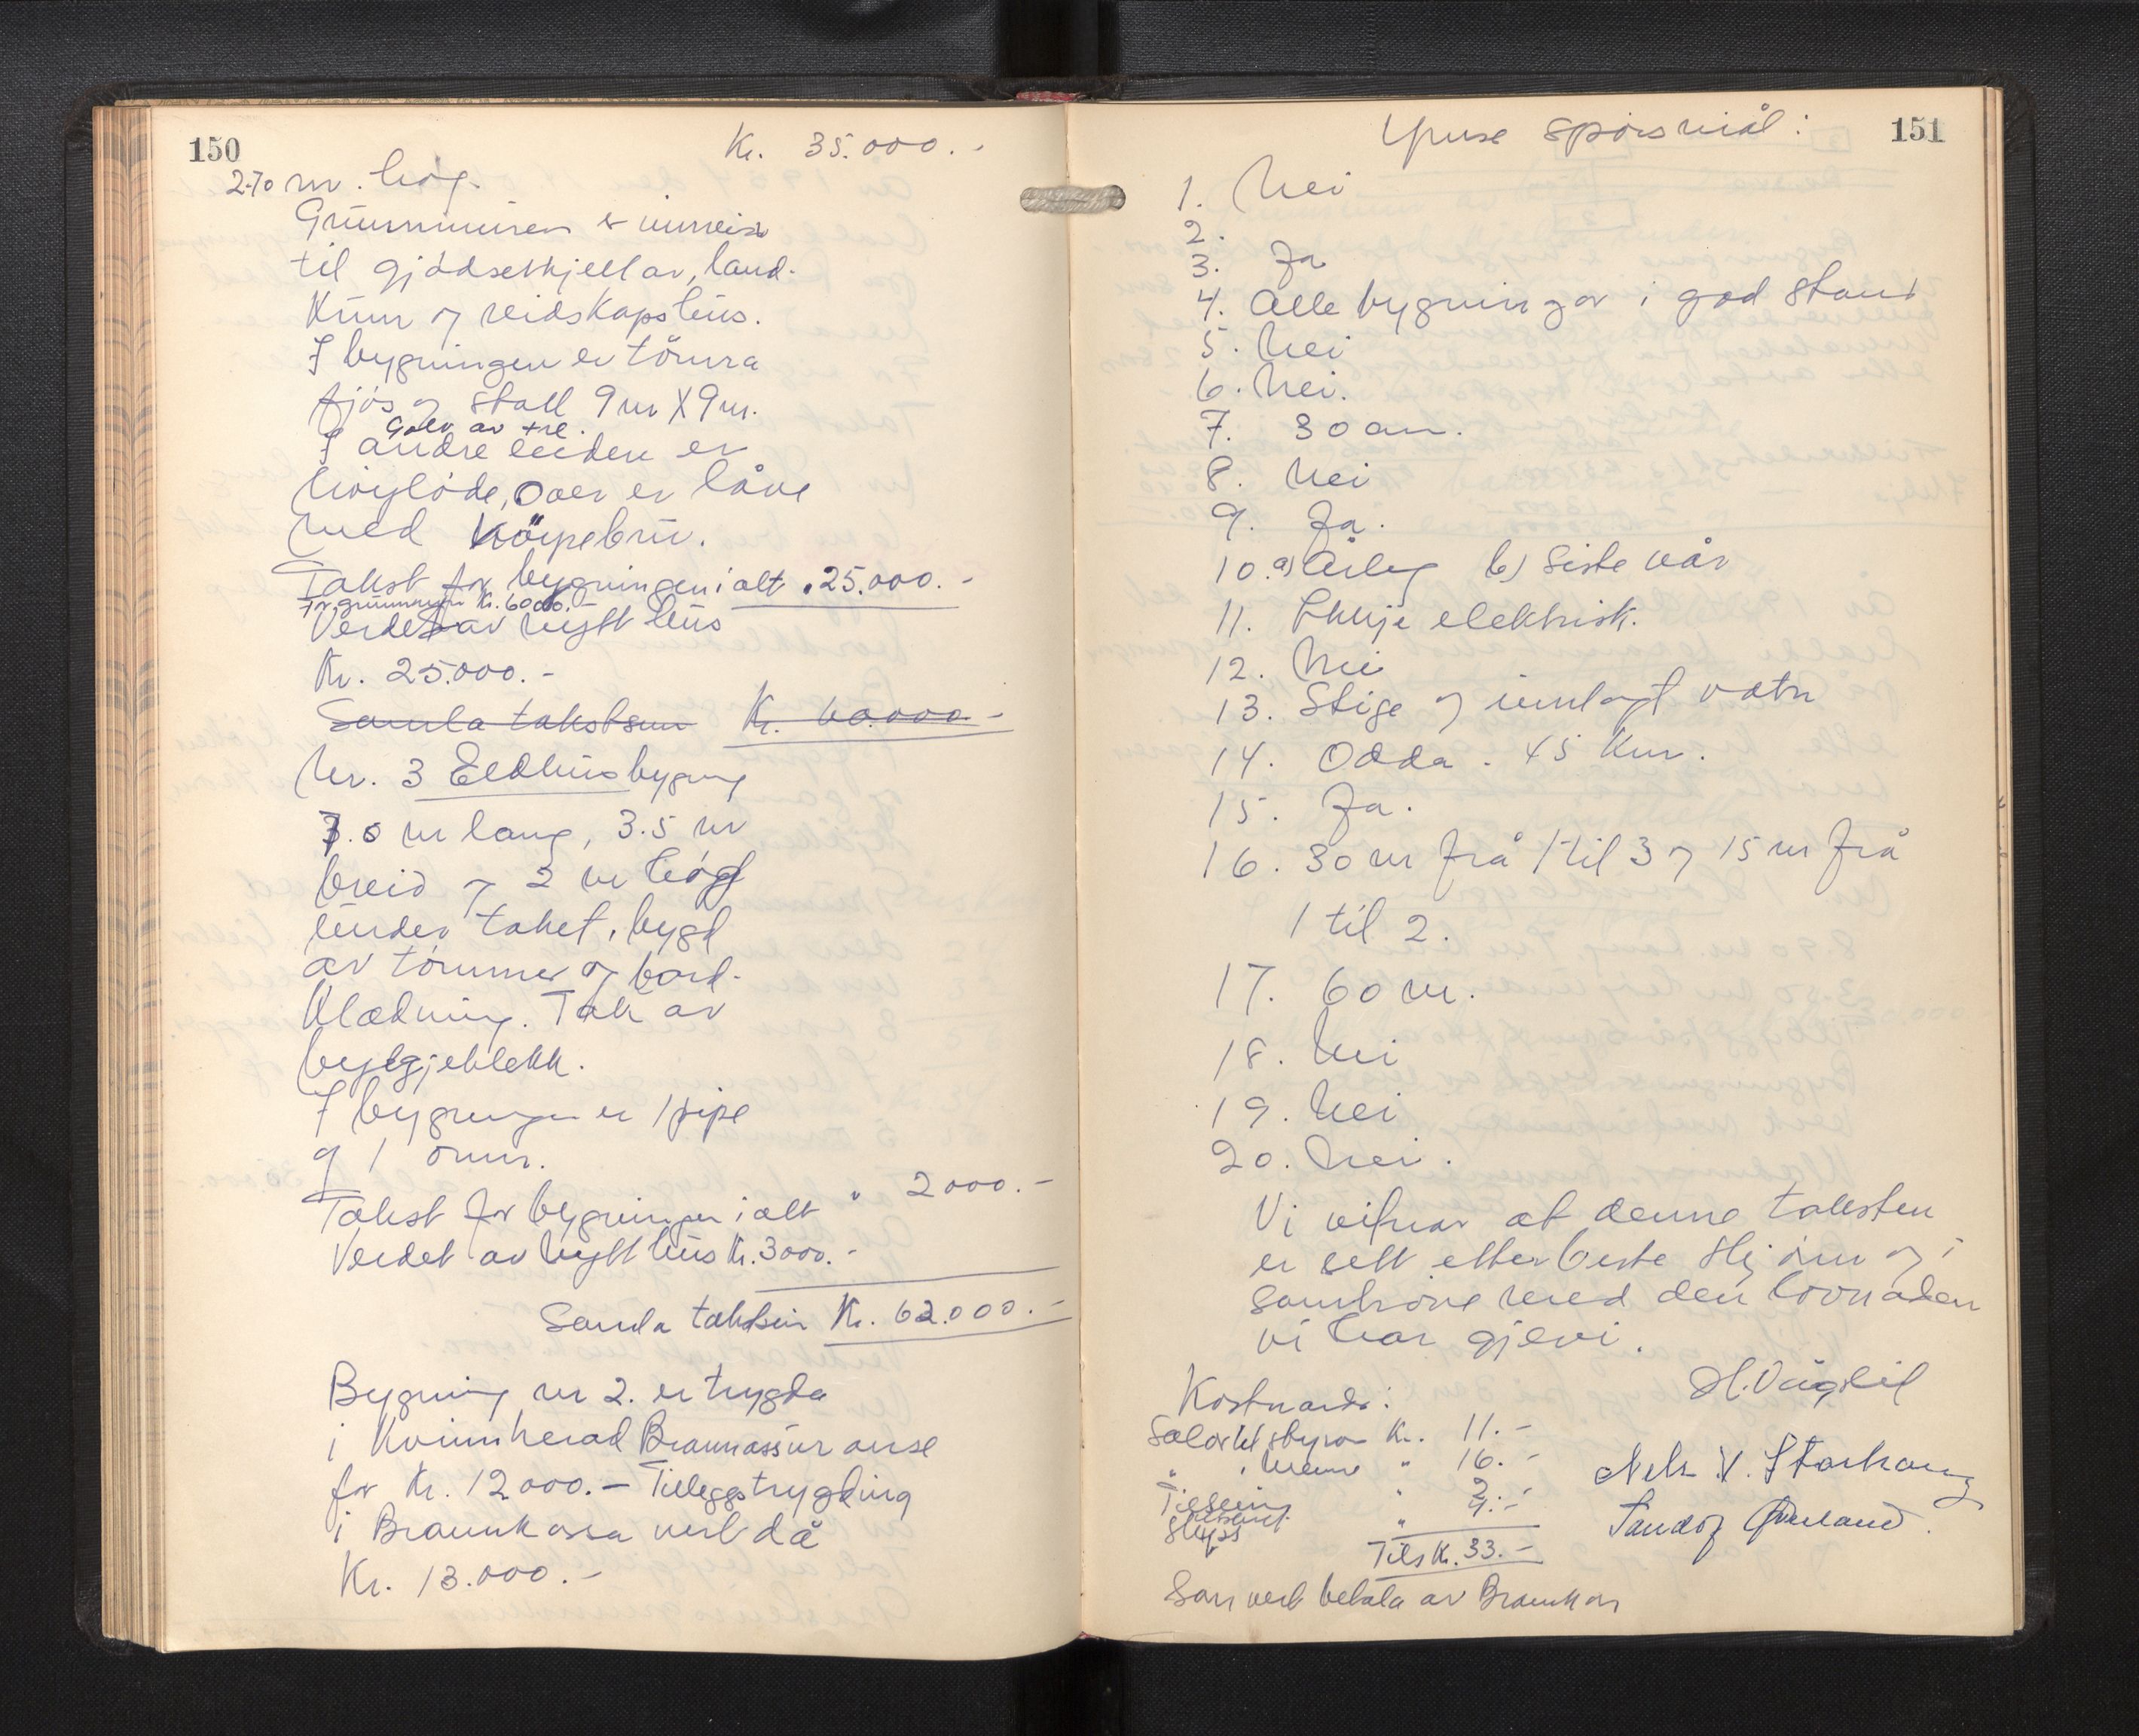 150
Kr. 35.000.-
2.70 m. høg.
Grunnmuren er innreia
til gjødselkjellar, land-
kum og reidskapshus.
I bygningen er tømra
fjøs og stall 9 m X 9 m.
Golv av tre.
I andre enden er
høyløde, over er låve
med køyrebru.
Takst for bygningen i alt " 25.000.-
For grunnmuren Kr. 6000.-
Verdet av nytt hus
Kr. 25.000.-
Samla takstsum Kr. 60.000.-
Nr. 3 Eldhusbygning
7.0 m lang, 3.5 m
breid og 2 m høgt
under taket, bygd
av tømmer og bord-
klædning. Tak av
bylgjeblekk.
I bygningen er 1 pipe
og 1 omn.
Takst for bygningen i alt " 2000.-
Verdet av nytt hus Kr. 3000.-
Samla takstsum Kr. 62.000.-
Bygning nr 2. er trygda
i Kvinnherad Brannassuranse
for Kr. 12000.- Tilleggstrygding
i Brannkassa vert då
Kr. 13.000.-
151
Ymse spørsmål:
1. Nei
2.
3. Ja
4. Alle bygningar i god stand
5. Nei
6. Nei.
7. 30 cm.
8. Nei
9. Ja.
10. a) Årleg b) Siste vår
11. Linje elektrisk.
12. Nei
13. Stige og innlagt vatn
14. Odda. 45 Km.
15. Ja.
16. 30 m frå 1 til 3 og 15 m frå
1 til 2.
17. 60 m.
18. Nei
19. Nei
20. Nei.
Vi vitnar at denne taksten
er sett etter beste skjønn og i
samhøve med den lovnaden
vi har gjevi.
H. Vågslid
Kostnader:
Kr. 11.-
" " 16.-
" 2.-
Skyss " 4.-
Tils Kr. 33.-
Nels V.
Som vert betala av Brannkassa